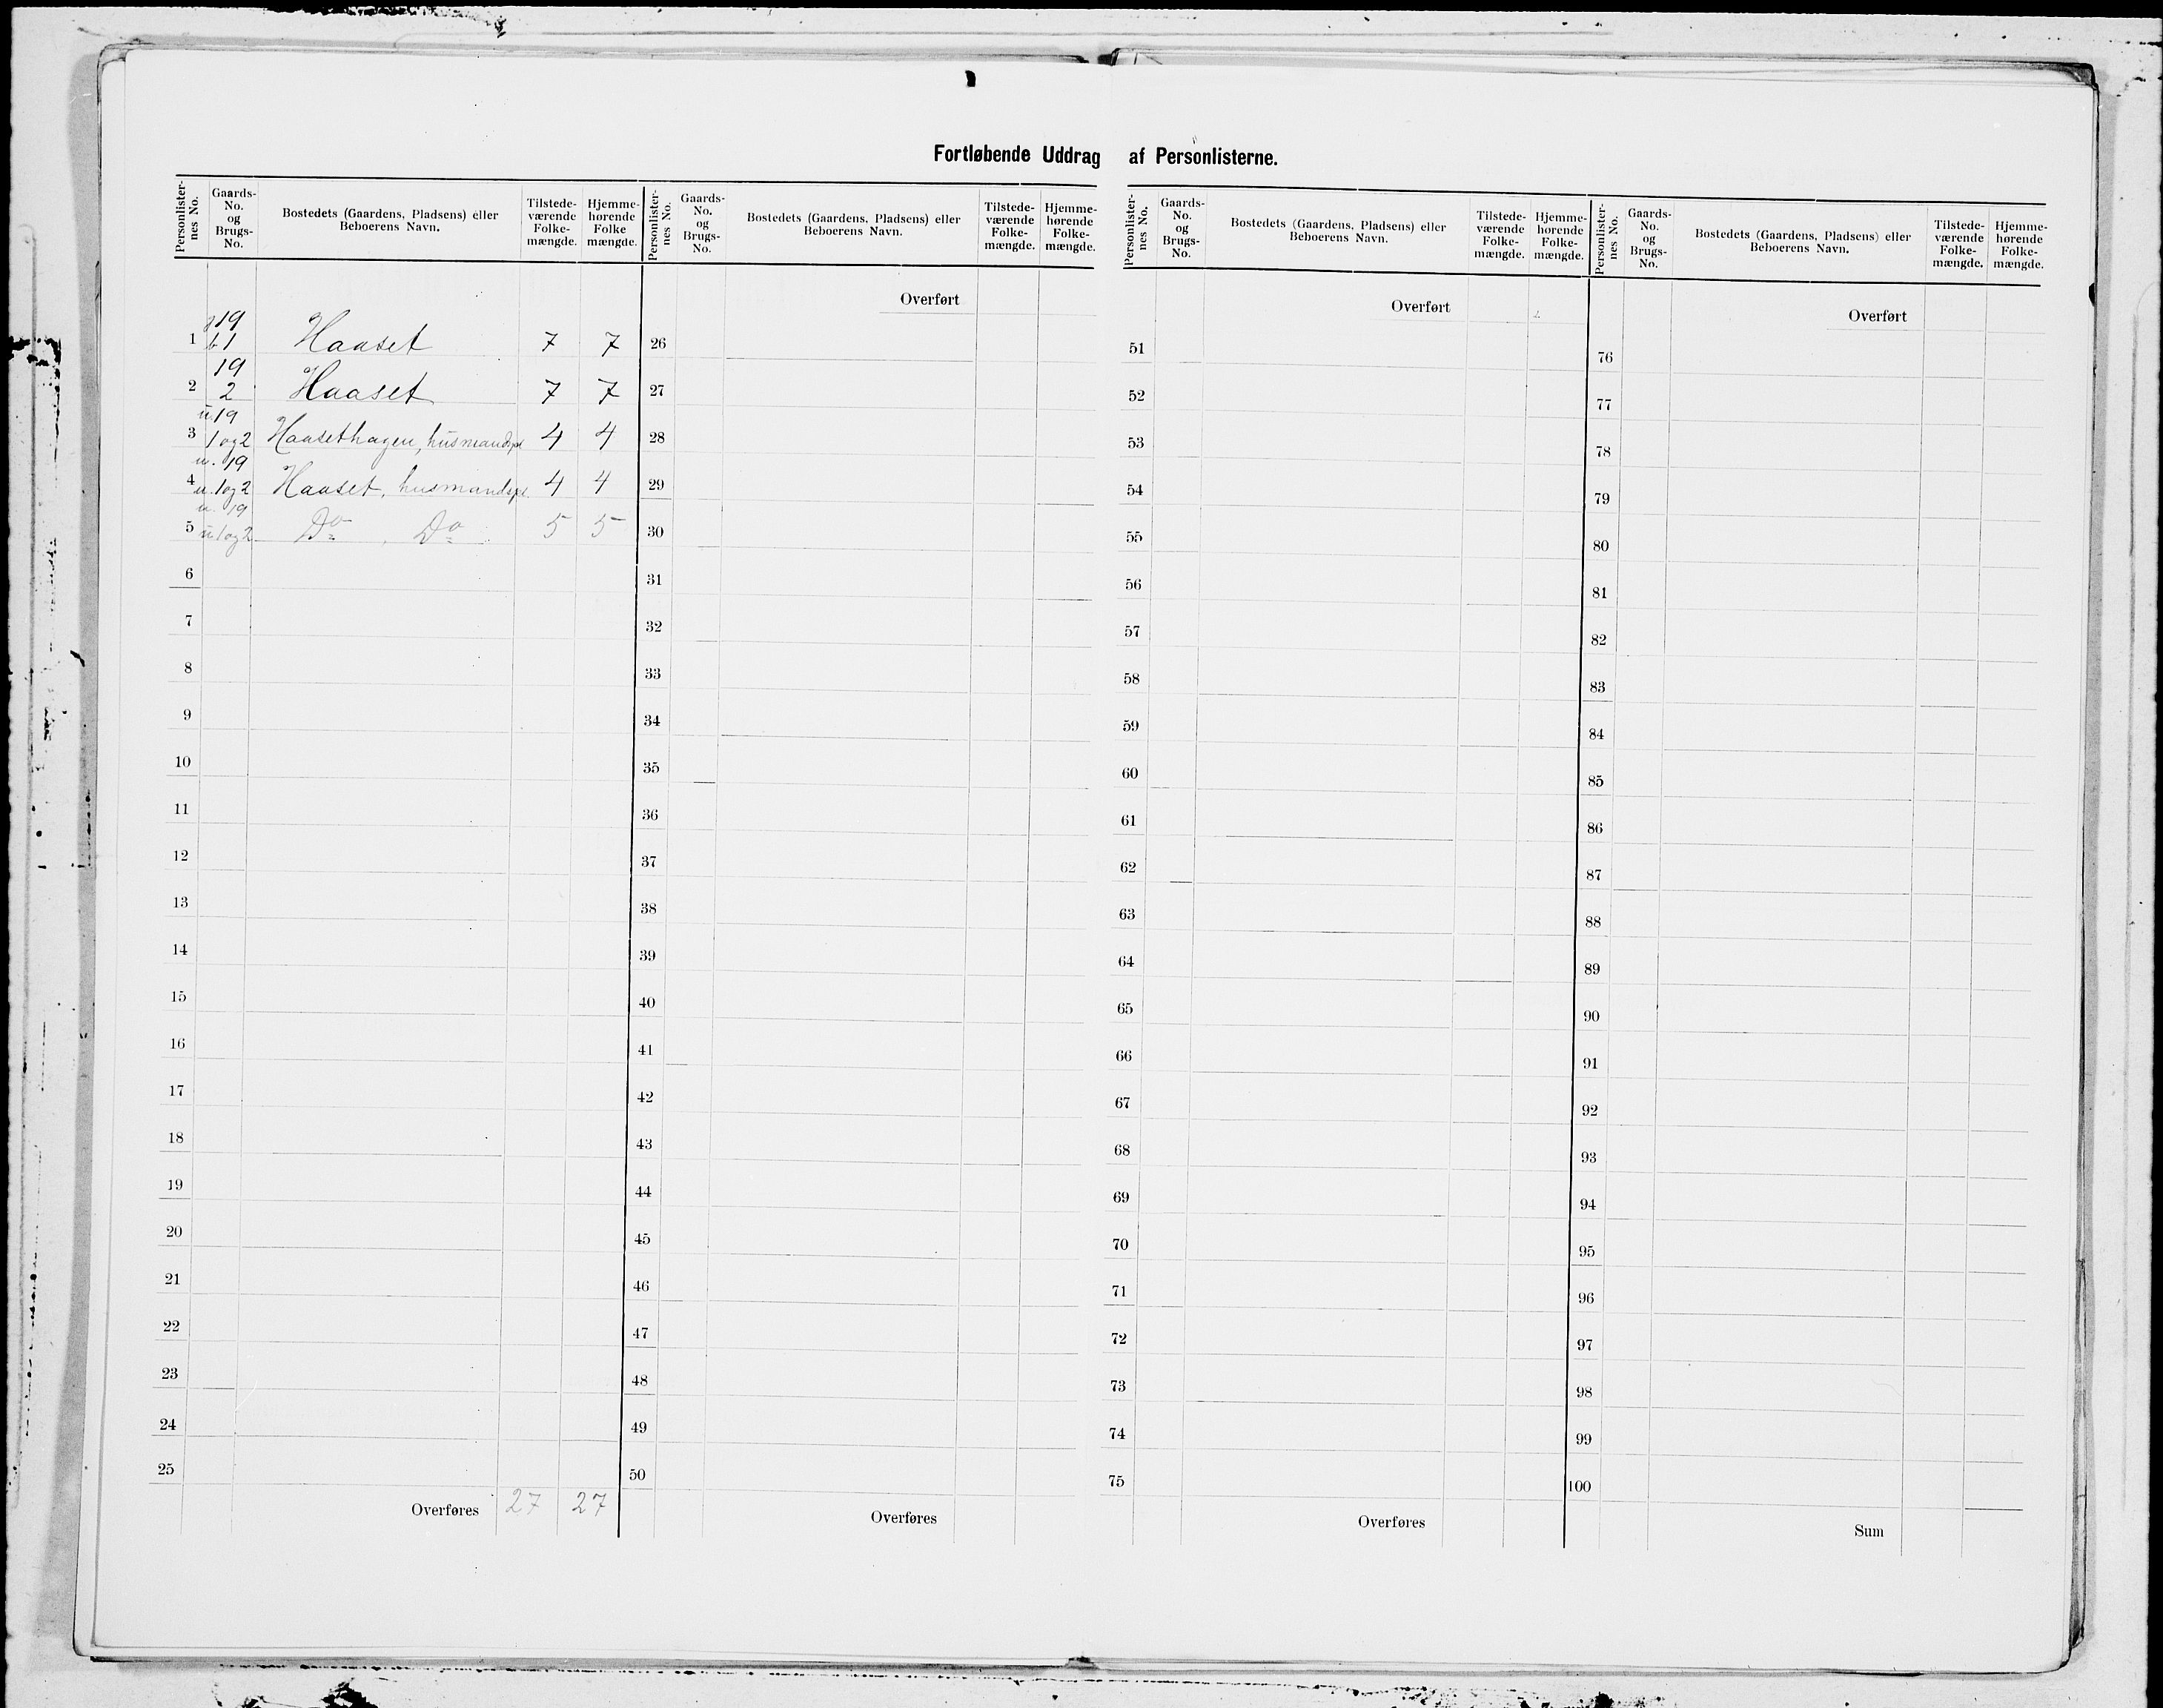 Fortløbende Uddrag af Personlisterne.
Personlister-nes No. | Gaards-No. og Brugs-No. | Bostedets (Gaardens, Pladsens) eller Beboerens Navn. | Tilstede-værende Folke-mængde. | Hjemme-hørende Folke mængde.
Personlister-nes No. | Gaards-No. og Brugs-No. | Bostedets (Gaardens, Pladsens) eller Beboerens Navn. | Tilstede-værende Folke-mængde. | Hjemme-hørende Folke-mængde.
Personlister-nes No. | Gaards-No. og Brugs-No. | Bostedets (Gaardens, Pladsens) eller Beboerens Navn. | Tilstede-værende Folke-mængde. | Hjemme-hørende Folke-mængde.
Personlister-nes No. | Gaards-No. og Brugs-No. | Bostedets (Gaardens, Pladsens) eller Beboerens Navn. | Tilstede-værende Folke-mængde. | Hjemme-hørende Folke-mængde.
g 19
1 b 1 Haaset 7 7
19
2 2 Haaset 7 7
u. 19
3 1 og 2 Haasethagen, husmandspl 4 4
u. 19
4 u. 1 og 2 Haaset, husmandspl. 4 4
u. 19
5 u. 1 og 2 Do , Do 5 5
6
7
8
9
10
11
12
13
14
15
16
17
18
19
20
21
22
23
24
25
Overføres 27 27
Overført
26
27
28
29
30
31
32
33
34
35
36
37
38
39
40
41
42
43
44
45
46
47
48
49
50
Overføres
Overført
51
52
53
54
55
56
57
58
59
60
61
62
63
64
65
66
67
68
69
70
71
72
73
74
75
Overføres
Overført
76
77
78
79
80
81
82
83
84
85
86
87
88
89
90
91
92
93
94
95
96
97
98
99
100
Sum